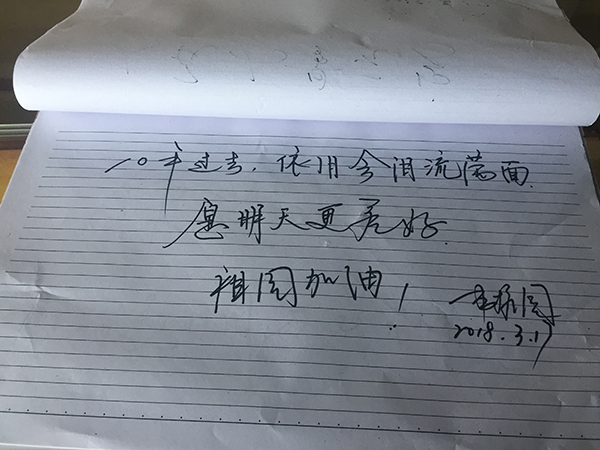 一〇年过去，依旧会泪流满面.
愿明天更美好.
祖国加油！
2018.3.17